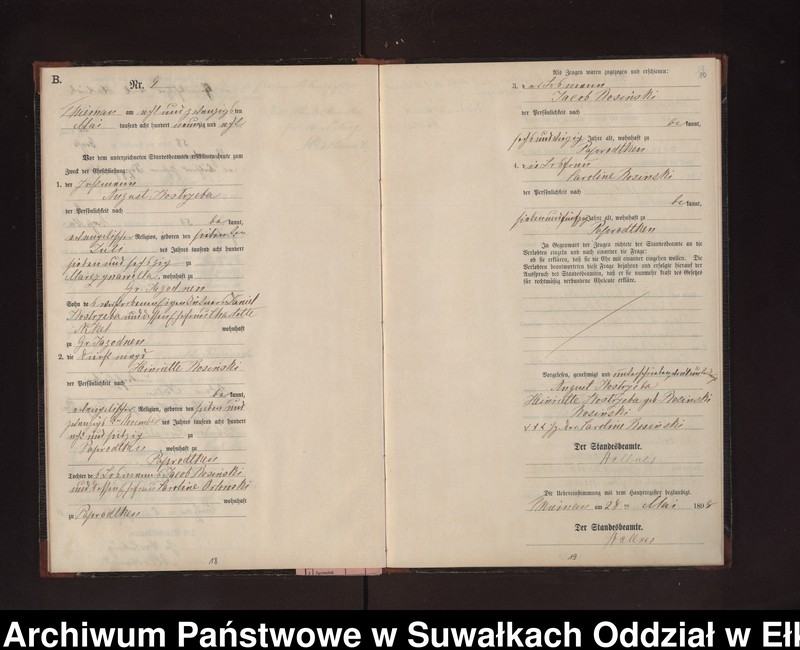 B.
Nr. 9
am acht und zwanzigsten
Mai tausend acht hundert neunzig und acht
Vor dem unterzeichneten Standesbeamten erschienen heute zum
Zweck der Eheschließung:
1. der
August Kostrzeba
der Persönlichkeit nach
be kannt,
evangelischer Religion, geboren den siebenten
Juli des Jahres tausend acht hundert
sieben und sechszig zu
wohnhaft zu
Gr. Jagodnen
Sohn des verstorbenen Daniel
Kostrzeba und dessen Ehefrau Charlotte
wohnhaft
zu Gr. Jagodnen
2. die
Henriette Rosinski
der Persönlichkeit nach
be kannt,
evangelischer Religion, geboren den sieben und
zwanzigsten des Jahres tausend acht hundert
acht und sechzig zu
Paprodtken wohnhaft zu
Paprodtken
Tochter des Losmann Jacob Rosinski
und dessen Ehefrau Caroline Orlowski
wohnhaft
zu Paprodtken
18
10
Als Zeugen waren zugezogen und erschienen:
3. der Losmann
Jacob Rosinski
der Persönlichkeit nach
be kannt,
Jahre alt, wohnhaft zu
Paprodtken
4. die Losfrau
Caroline Rosinski
der Persönlichkeit nach
be kannt,
sieben und fünfzig Jahre alt, wohnhaft zu
Paprodtken
In Gegenwart der Zeugen richtete der Standesbeamte an die
Verlobten einzeln und nach einander die Frage:
ob sie erklären, daß sie die Ehe mit einander eingehen wollen. Die
Verlobten beantworteten diese Frage bejahend und erfolgte hierauf der
Ausspruch des Standesbeamten, daß er sie nunmehr kraft des Gesetzes
für rechtmäßig verbundene Eheleute erkläre.
Vorgelesen, genehmigt und
August Kostrzeba
Henriette Kostrzeba geb. Rosinski
Rosinski
+++ Caroline Rosinski
Der Standesbeamte.
Die Uebereinstimmung mit dem Hauptregister beglaubigt.
am 28 ten Mai 1898
Der Standesbeamte.
19
Archiwum Państwowe w Suwałkach Oddział w Ełk